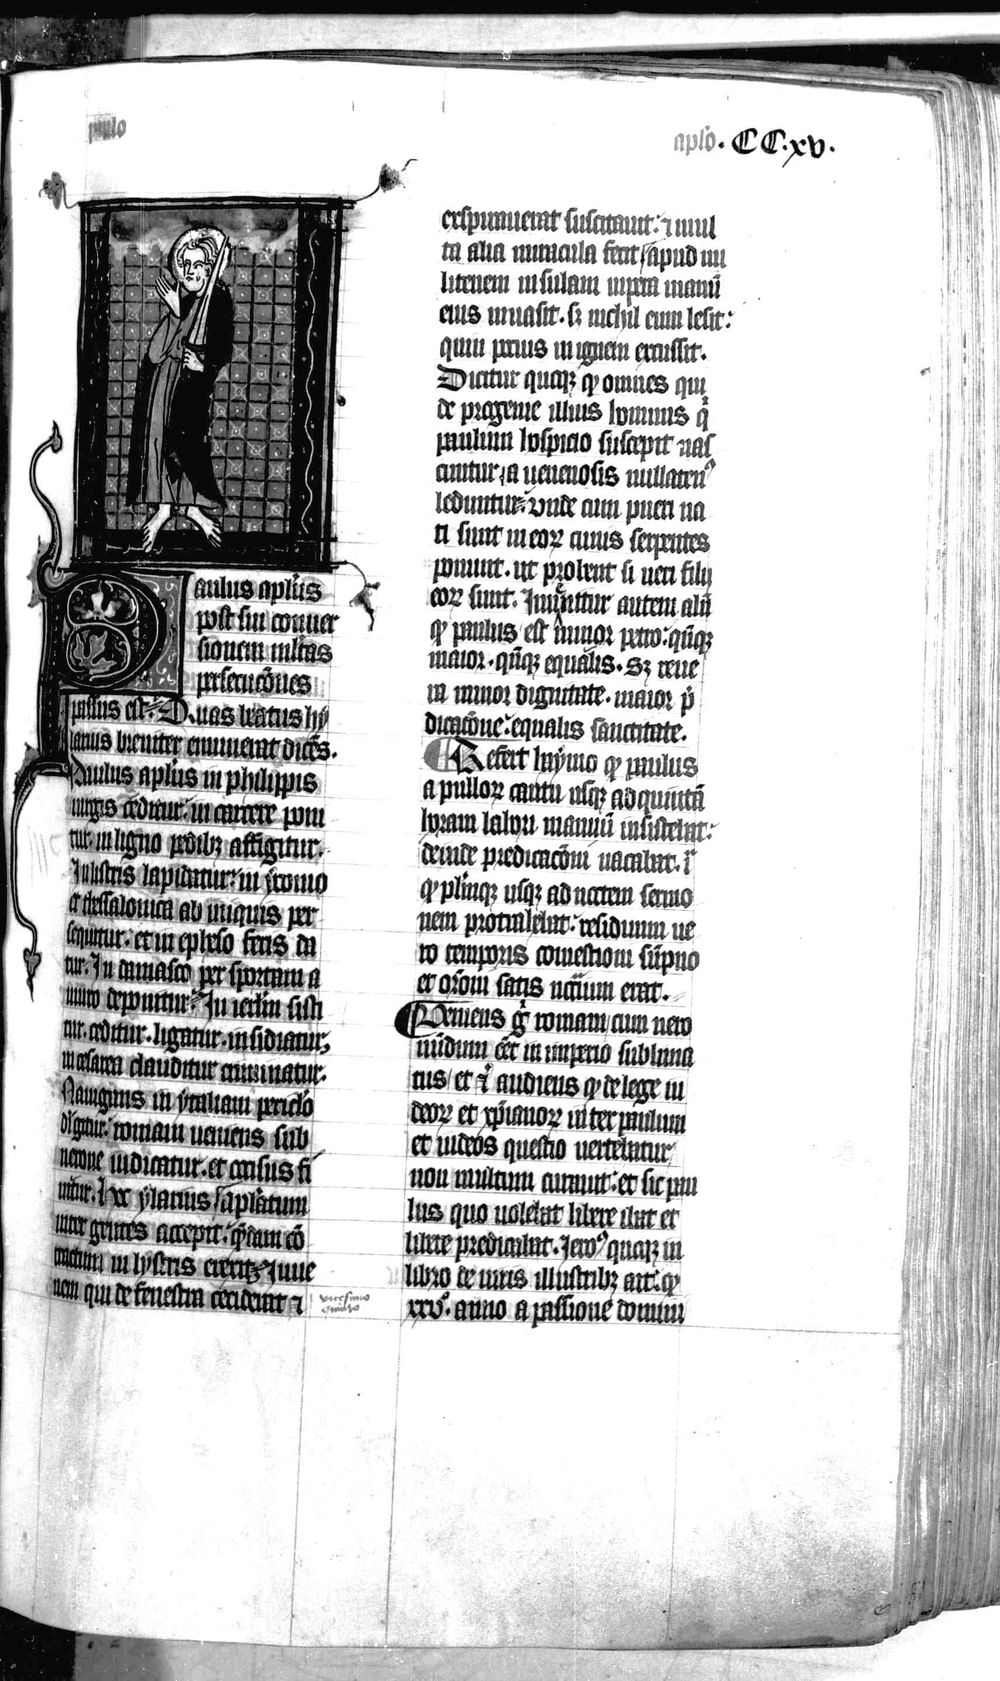 paulo
aplo. CC.xv.
aulus aplus
post sui conuer
sionem mltas
persecucões
passus est. Quas beatus hy
larius breuiter enumerat dicẽs.
Paulus aplus in philippis
uirgis ceditur. in carcere poni
tur. in ligno pedibꝫ affigitur.
In listris lapidatur. in yconio
et thessalonica ab iniquis per
sequitur. et in epheso feris da
tur. In damasco per sportam a
muro deponitur. In ierlm sisti
tur. ceditur. ligatur. insidiatur.
in cesarea clauditur criminatur.
Nauigans in ytaliam periclo
dr̃gitur. romam ueniens sub
nerone iudicatur. et occisus fi
nitur. Hec ylarius. aplatum
inter gentes accepit. q̃dam cõ
tractum in lystris erexit. Iuue
nem qui de fenestra ceciderat ⁊
vicesimo
quinto
exspirauerat suscitauit. ⁊ mul
ta alia miracula fecit. apud mi
litenem insulam uipera manũ
eius inuasit. sꝫ nichil eum lesit.
quin pocius in ignem excussit.
Dicitur quoqꝫ ꝙ omnes qui
de progenie illius hominis q̃
paulum hospicio suscepit nas
cuntur. a uenenosis nullatenꝰ
leduntur. Vnde cum pueri na
ti sunt in eoꝝ cunis serpentes
ponunt. ut probent si ueri filij
eoꝝ sunt. Inuenitur autem alibi
ꝙ paulus est minor petro. qñqꝫ
maior. qñqꝫ equalis. Sꝫ reue
ra minor dignitate. maior p̃
dicacõne. equalis sanctitate.
Refert haymo ꝙ paulus
a pulloꝝ cantu usqꝫ ad quintã
horam labori manuũ insistebat.
deinde predicacõni uacabat. ita
ꝙ plerũqꝫ usqꝫ ad noctem sermo
nem protrahebat. residuum ue
ro temporis comestioni sompno
et oroni satis necessarium erat.
Veniens g̃ romam cum nero
nundum esset in imperio sublima
tus et audiens ꝙ de lege iu
deoꝝ et xp̃ianoꝝ inter paulum
et iudeos questio uertebatur
non multum curauit. et sic pau
lus quo uolebat libere ibat et
libere predicabat. Ieroꝰ quoqꝫ in
libro de uiris illustribꝫ ait. ꝙ
xxvº. anno a passione domini